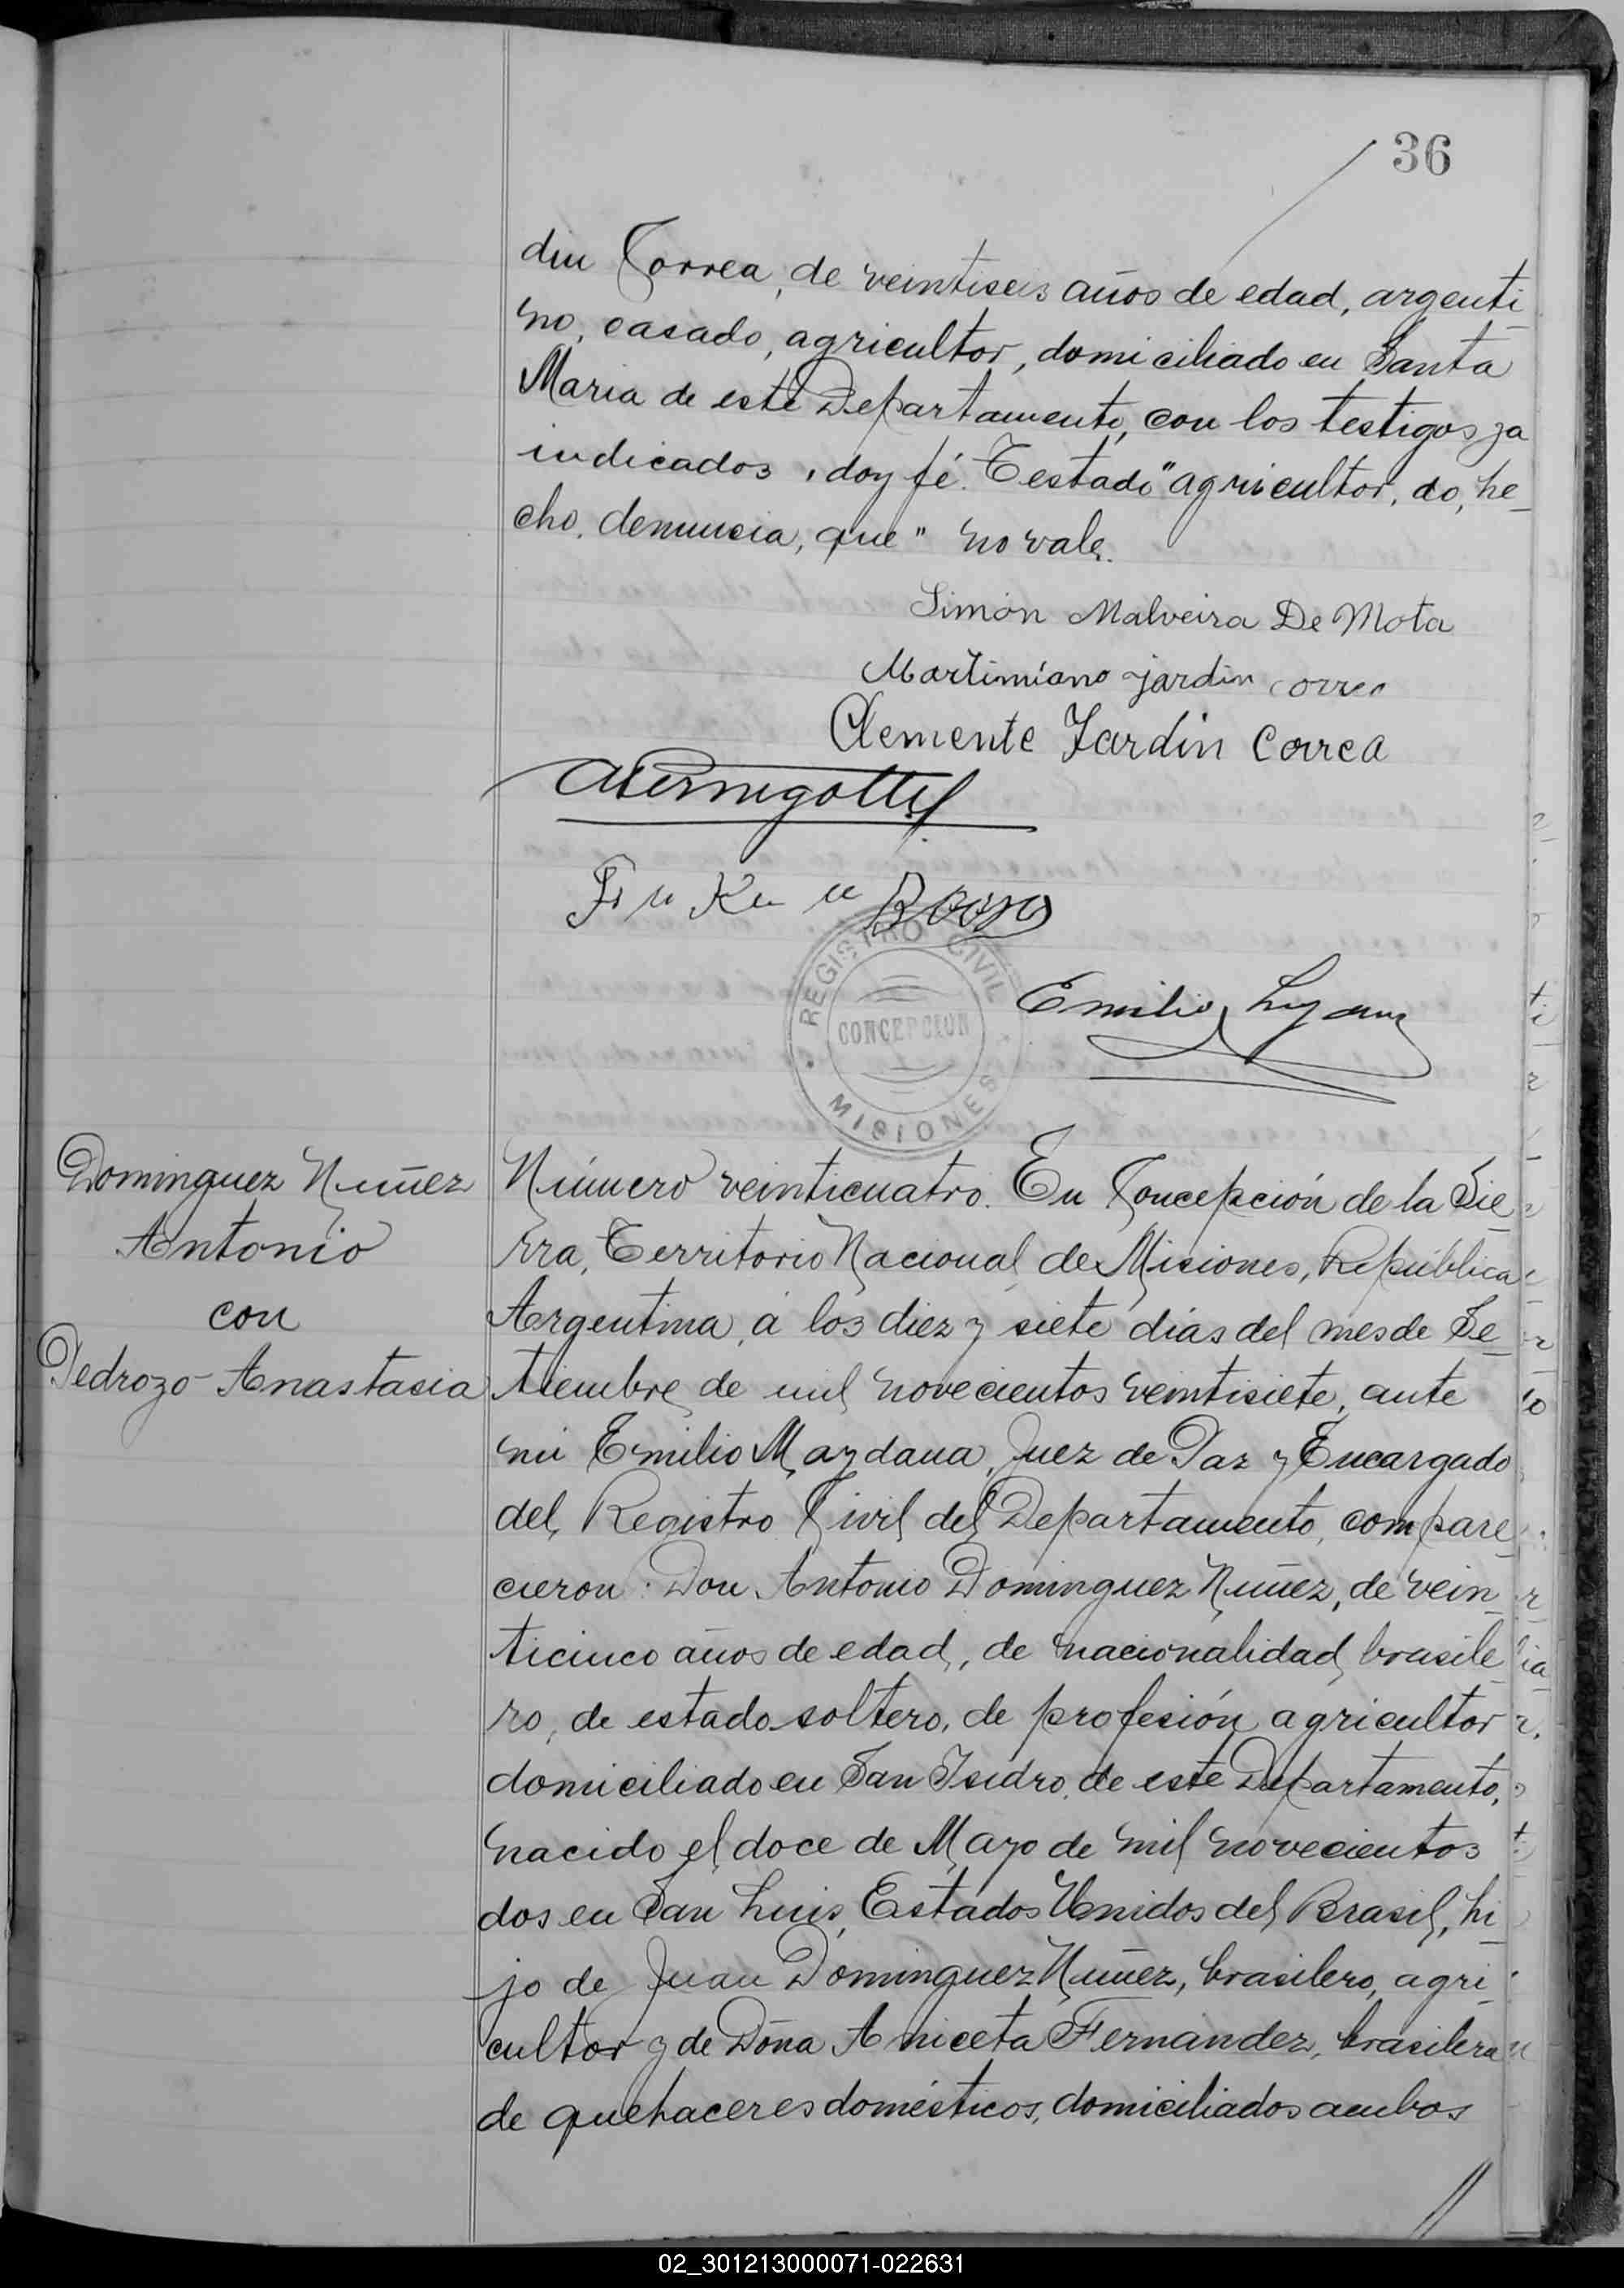 36
din Correa, de veintiseis años de edad, argenti
no, casado, agricultor, domiciliado en Santa
Maria de este Departamento, con los testigos ya
indicados, doy fé. Testado "agricultor, do, he
cho, denuncia, que" no vale.
Simón Malveira De Mota
Martimiano jardin correa
Clemente Jardin Correa
REGISTRO CIVIL
CONCEPCION
MISIONES
Emilio
Dominguez Nuñez
Antonio
con
Pedrozo Anastasia
Número veinticuatro. En Concepción de la Sie
rra, Territorio Nacional de Misiones, República
Argentina, á los diez y siete dias del mes de Se
tiembre de mil novecientos veintisiete, ante
mi Emilio Maydana, Juez de Paz y Encargado
del Registro Civil del Departamento, compare
cieron: Don Antonio Dominguez Nuñez, de vein
ticinco años de edad, de nacionalidad brasile
ro, de estado soltero, de profesión agricultor
domiciliado en San Isidro, de este Departamento,
nacido el doce de Mayo de mil novecientos
dos en San Luis, Estados Unidos del Brasil, hi
jo de Juan Dominguez Nuñez, brasilero, agri
cultor y de Doña Aniceta Fernandez, brasilera
de quehaceres domésticos, domiciliados ambos
02_301213000071-022631